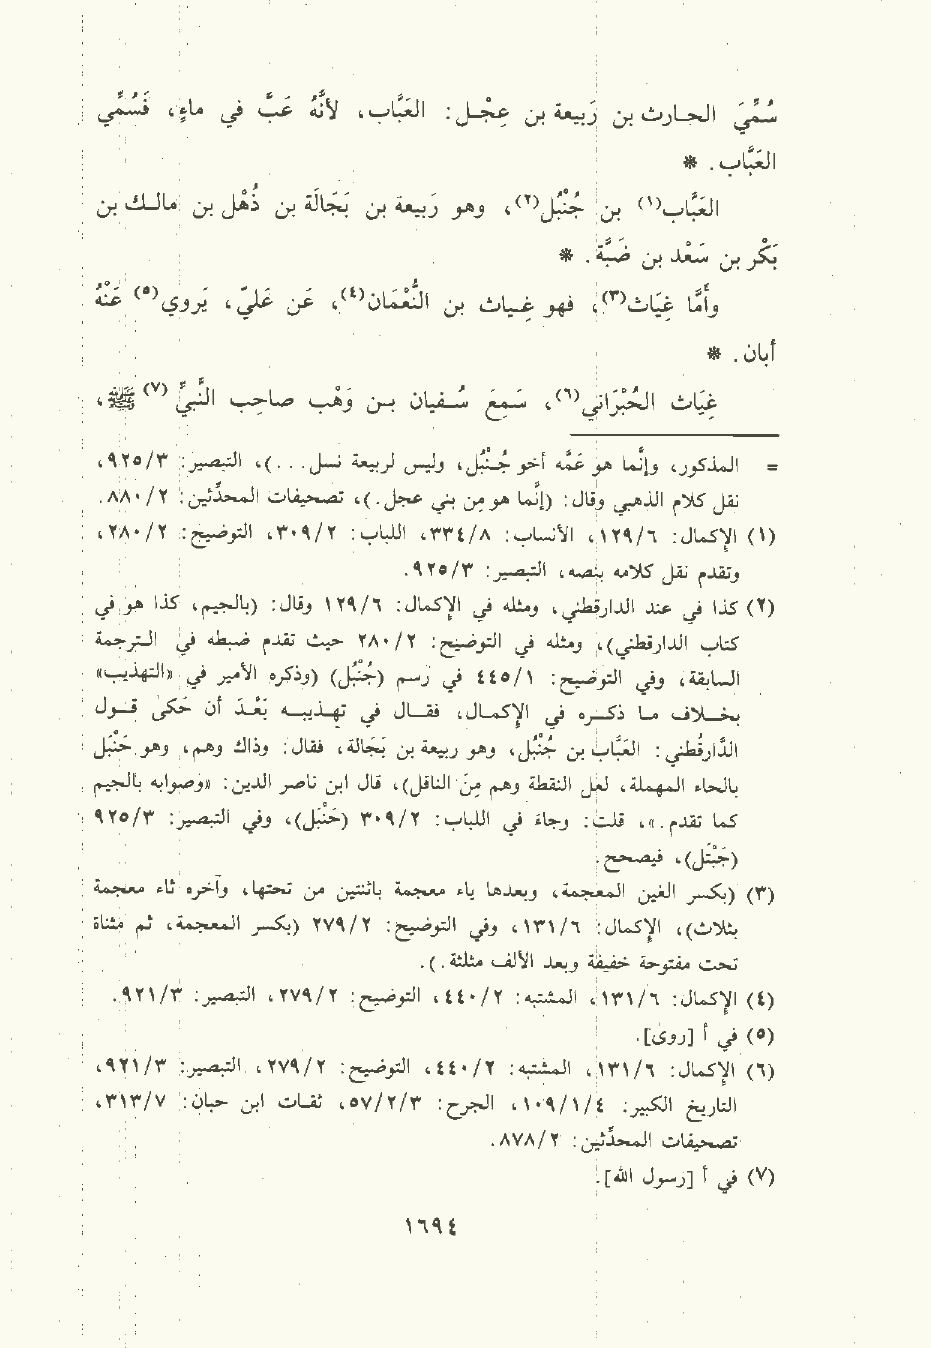 سُمِّيَ الحـارث بن رَبيعة بن عِجْـل: العَبَّاب، لأنَّهُ عَبَّ في ماءٍ، فَسُمِّي
العَبَّاب. *
العَبَّاب(١) بن جُنْبُل(٢)، وهو رَبيعة بن بَجَالَة بن ذُهْل بن مالـك بن
بَكْر بن سَعْد بن ضَبَّة. *
وأَمَّا غِيَاث(٣)، فهو غِـياث بن النُّعْمَان(٤)، عَن عَليّ، يَروي(٥) عَنْهُ
أبان. *
غِيَاث الحُبْرَاني(٦)، سَـمِعَ سُـفيان بـن وَهْب صاحِب النَّبيِّ(٧) ﷺ،
= المذكور، وإنَّما هو عَمه أخو جُـنْبُل، وليس لربيعة نسل...)، التبصير: ٣/٩٢٥،
نقل كلام الذهبي وقال: (إنَّما هو مِن بني عجل.)، تصحيفات المحدِّثين: ٢/٨٨٠.
(١) الإكمال: ٦/١٢٩، الأنساب: ٨/٣٣٤، اللباب: ٢/٣٠٩، التوضيح: ٢/٢٨٠،
وتقدم نقل كلامه بنصه، التبصير: ٣/٩٢٥.
(٢) كذا في عند الدارقطني، ومثله في الإكمال: ٦/١٢٩ وقال: (بالجيم، كذا هو في
كتاب الدارقطني)، ومثله في التوضيح: ٢/٢٨٠ حيث تقدم ضبطه في الترجمة
السابقة، وفي التوضيح: ١/٤٤٥ في رَسم (جُنْبُل) (وذكره الأمير في «التهذيب»
بخـلاف ما ذكـره في الإكمـال، فقـال في تهـذيبـه بَعْـدَ أن حَكىٰ قـول
الدَّارقُطني: العَبَّاب بن جُنْبُل، وهو ربيعة بن بَجَالة، فقال: وذاك وَهم، وهو حَنْبَل
بالحاء المهملة، لعل النقطة وهم مِنَ الناقل)، قال ابن ناصر الدين: «وصوابه بالجيم
كما تقدم.»، قلت: وجاء في اللباب: ٢/٣٠٩ (حَنْبَل)، وفي التبصير: ٣/٩٢٥
(جَبْتَل)، فيصحح.
(٣) (بكسر الغين المعجمة، وبعدها ياء معجمة باثنتين من تحتها، وآخره ثاء معجمة
بثلاث)، الإكمال: ٦/١٣١، وفي التوضيح: ٢/٢٧٩ (بكسر المعجمة، ثم مثناة
تحت مفتوحة خفيفة وبعد الألف مثلثة.).
(٤) الإكمال: ٦/١٣١، المشتبه: ٢/٤٤٠، التوضيح: ٢/٢٧٩، التبصير: ٣/٩٢١.
(٥) في أ [روىٰ].
(٦) الإكمال: ٦/١٣١، المشتبه: ٢/٤٤٠، التوضيح: ٢/٢٧٩، التبصير: ٣/٩٢١،
التاريخ الكبير: ٤/١/١٠٩، الجرح: ٣/٢/٥٧، ثقات ابن حبان: ٧/٣١٣،
تصحيفات المحدِّثين: ٢/٨٧٨.
(٧) في أ [رسول الله].
١٦٩٤